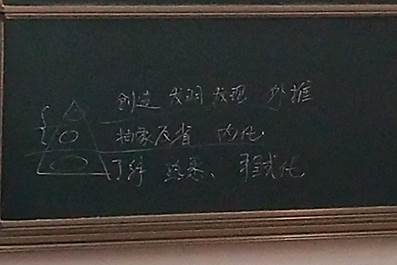 创造 发明 发现 外推
抽象反省 内化
了解 熟悉、程式化